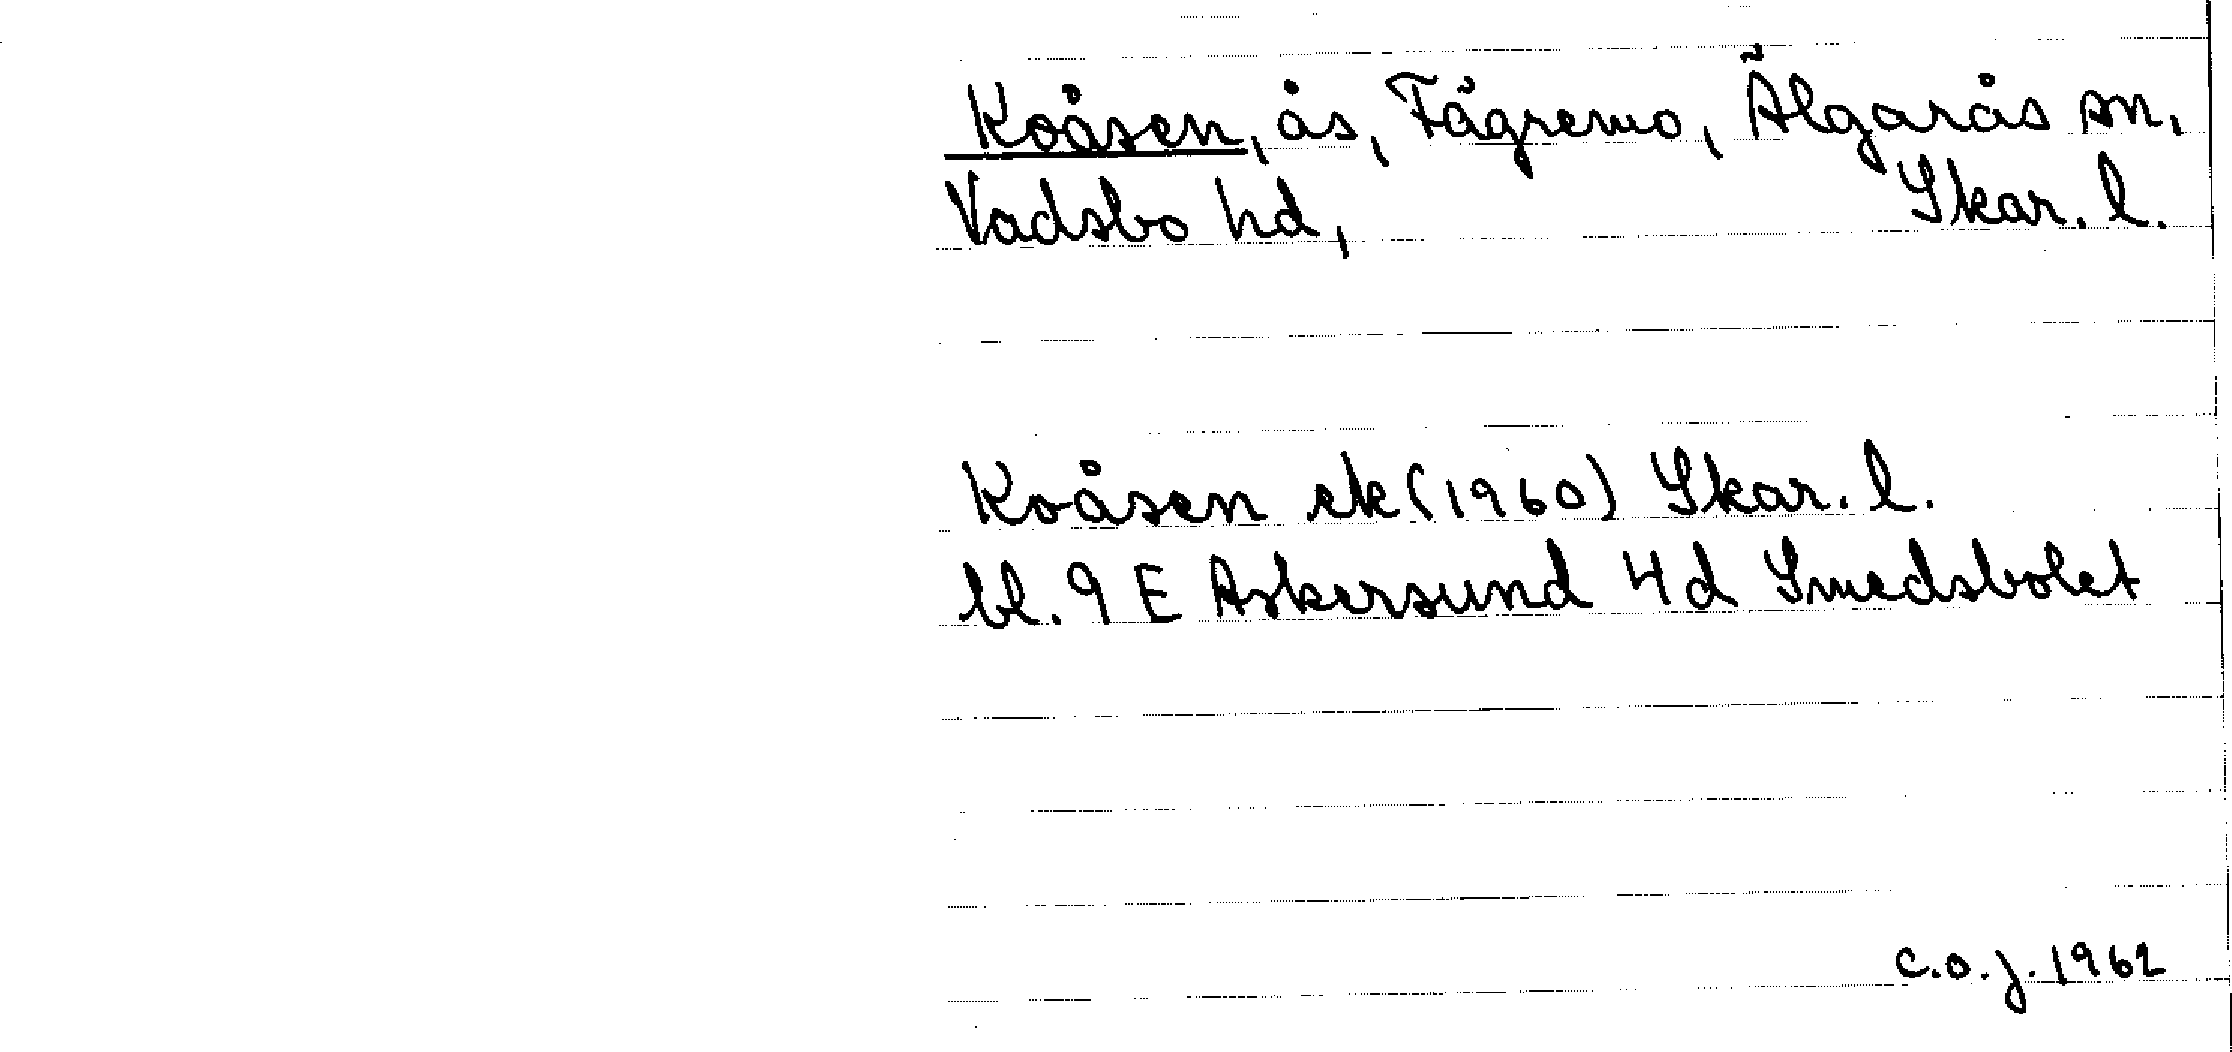 Koåsen, ås, Fägremo, Älgarås sn,
Vadsbo hd, Skar. l.
Koåsen ek (1960) Skar. l.
bl. 9 E Askersund 4d Smedsbolet
C.O.J. 1962